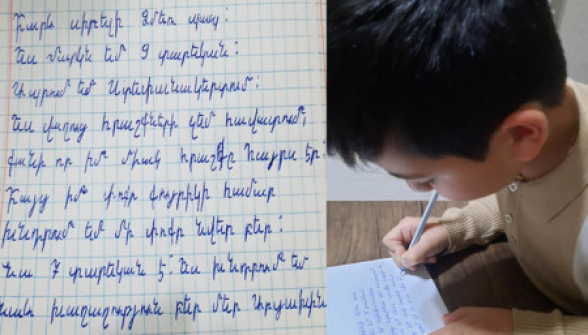 Բարև սիրելի Ձմեռ պապ:
Ես Մարկն եմ 9 տարեկան:
Ապրում եմ Ստեփանակերտում:
Ես վաղուց հրաշքների չեմ հավատում,
քանի որ իմ միակ հրաշքը հայրս էր:
Բայց իմ փոքր քույրիկի համար
խնդրում եմ մի փոքր նվեր բեր:
Նա 7 տարեկան է: Ես խնդրում եմ
նաև խաղաղություն բեր մեր Արցախին